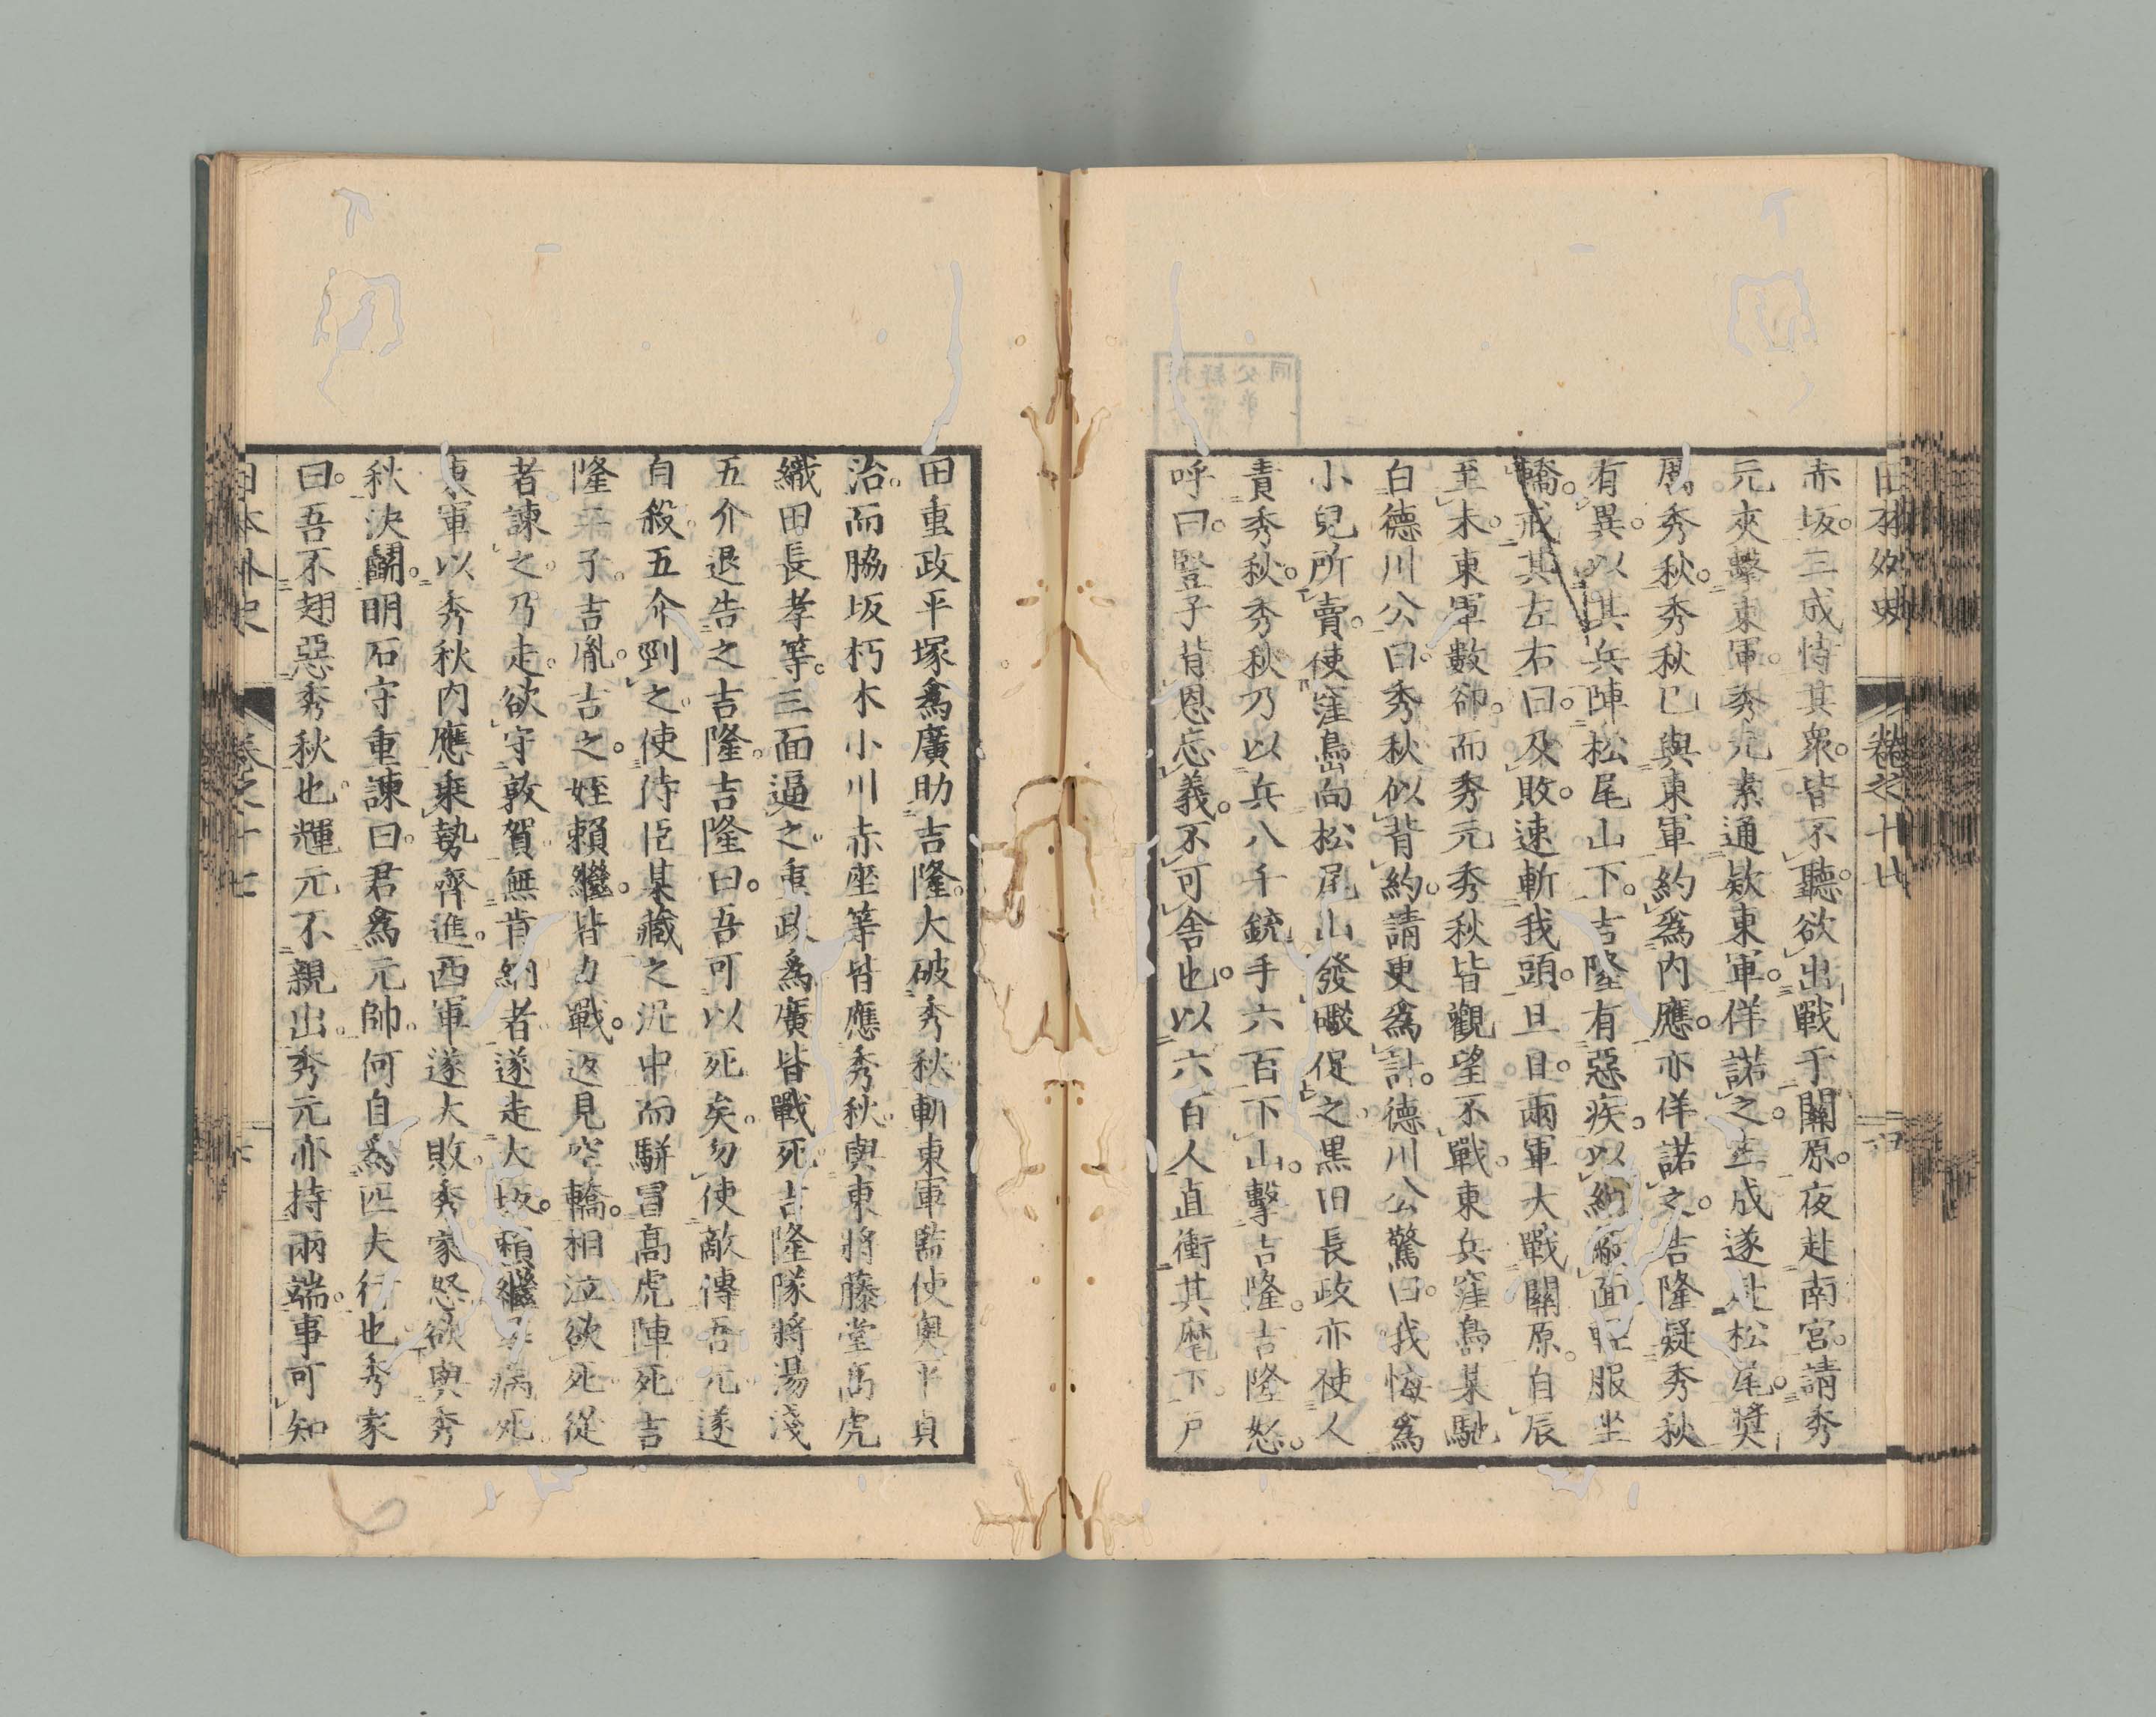 日本外史 卷之十七
赤坂。三成恃其衆。皆不聽。欲出戰于關原。夜赴南宮。請秀
元夾擊東軍。秀元素通欵東軍。佯諾之。三成遂赴松尾。奬
厲秀秋。秀秋已與東軍約爲内應。亦佯諾之。吉隆疑秀秋
有異。以其兵陣松尾山下。吉隆有惡疾。以絹蔽面。輕服坐
轎。戒其左右曰。及敗。速斬我頭。旦日。兩軍大戰關原。自辰
至未。東軍數卻。而秀元秀秋皆觀望不戰。東兵窪島某馳
白德川公曰。秀秋似背約。請更爲計。德川公驚曰。我悔爲
小兒所賣。使窪島向松尾山發礮促之。黒田長政亦使人
責秀秋。秀秋乃以兵八千銃手六百下山。擊吉隆。吉隆怒。
呼曰。豎子背恩忘義。不可舍也。以六百人直衝其麾下。戸
田重政平塚爲廣助吉隆。大破秀秋。斬東軍監使奧平貞
治。而脇坂朽木小川赤座等皆應秀秋。與東將藤堂高虎
織田長孝等。三面逼之。重政爲廣皆戰死。吉隆隊將湯淺
五介退告之吉隆。吉隆曰。吾可以死矣。勿使敵傳吾元。遂
自殺。五介剄之。使侍臣某藏之泥中。而駢冒高虎陣死。吉
隆子吉胤。吉之。姪賴繼。皆力戰。返見空轎。相泣欲死。從
者諫之。乃走。欲守敦賀。無肯納者。遂走大坂。賴繼病死。
東軍以秀秋内應。乘勢齊進。西軍遂大敗。秀家怒欲與秀
秋決鬭。明石守重諫曰。君爲元帥。何自爲匹夫行也。秀家
曰。吾不翅惡秀秋也。輝元不親出。秀元亦持兩端。事可知
日本外史 卷之十七